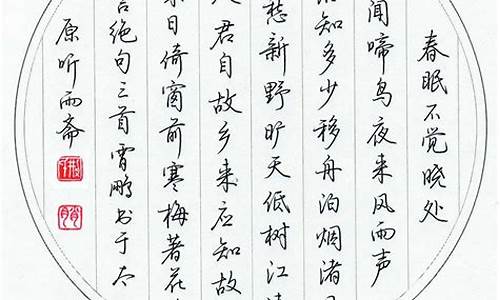 春眠不觉晓处
闻啼鸟夜来风雨声
知多少移舟泊烟渚日
愁新野旷天低树江清
君自故乡来应知故
来日绮窗前寒梅著花
言绝句三首霄鹏书于太
原听雨斋